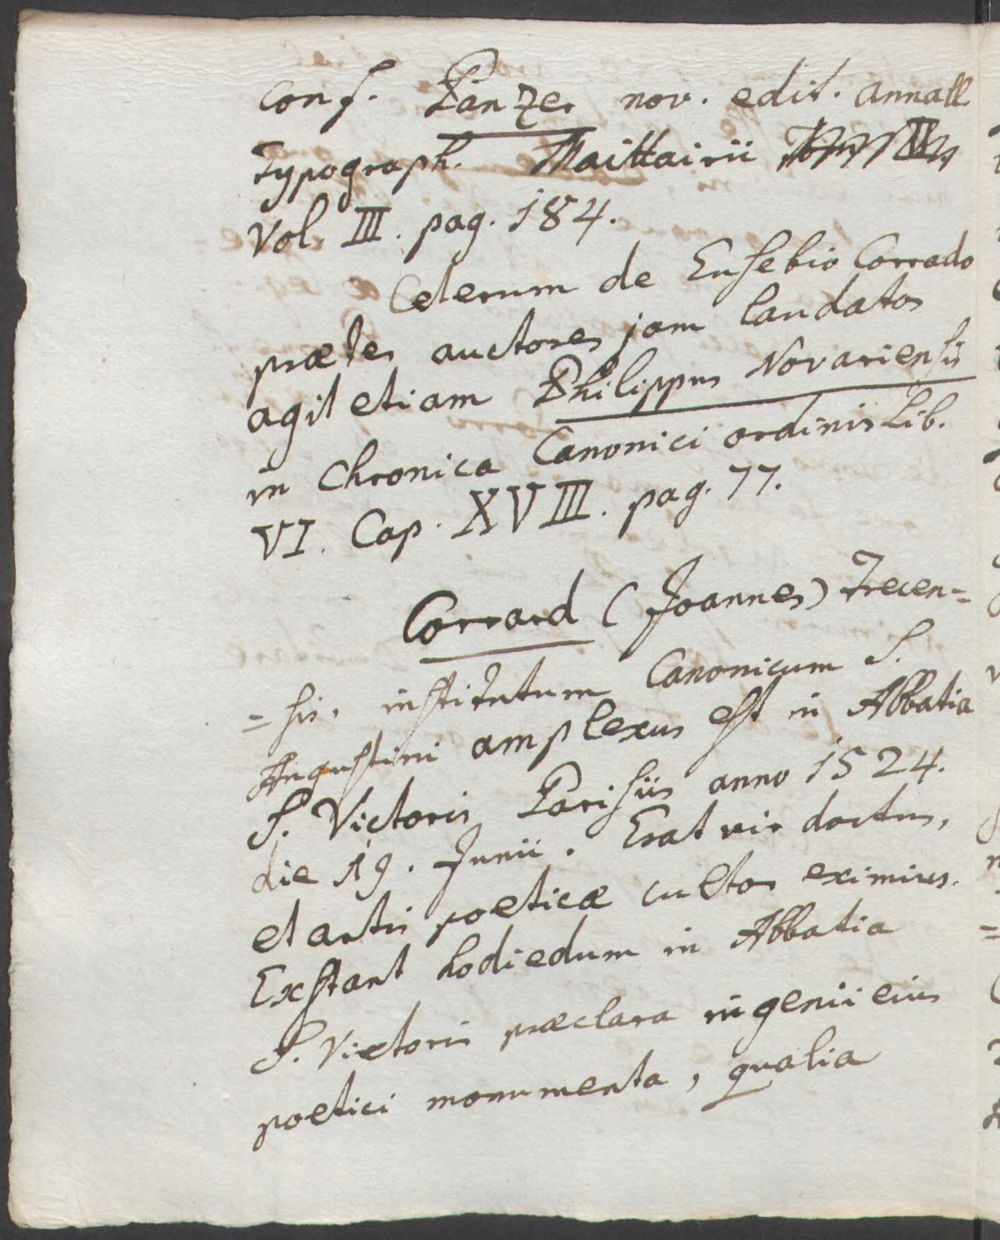 conf. Panzer nov. edit. annall.
Typograph. Maittairii
Vol III. pag. 184.
Ceterum de Eusebio Corrado
præter auctores jam laudatos
agit etiam Philippus Novariensis
in Chronica Canonici ordinis Lib.
VI. Cap. XVIII. pag. 77.
Corrard (Joannes) Trecen=
=sis, institutum Canonicum S.
Augustini amplexus est in Abbatia
S. Victoris Parisiis anno 1524.
die 19. Junii. Erat vir doctus,
et artis poeticæ cultor eximius.
Exstant hodiedum in Abbatia
S. Victoris præclara ingenii eius
poetici monumenta, qualia